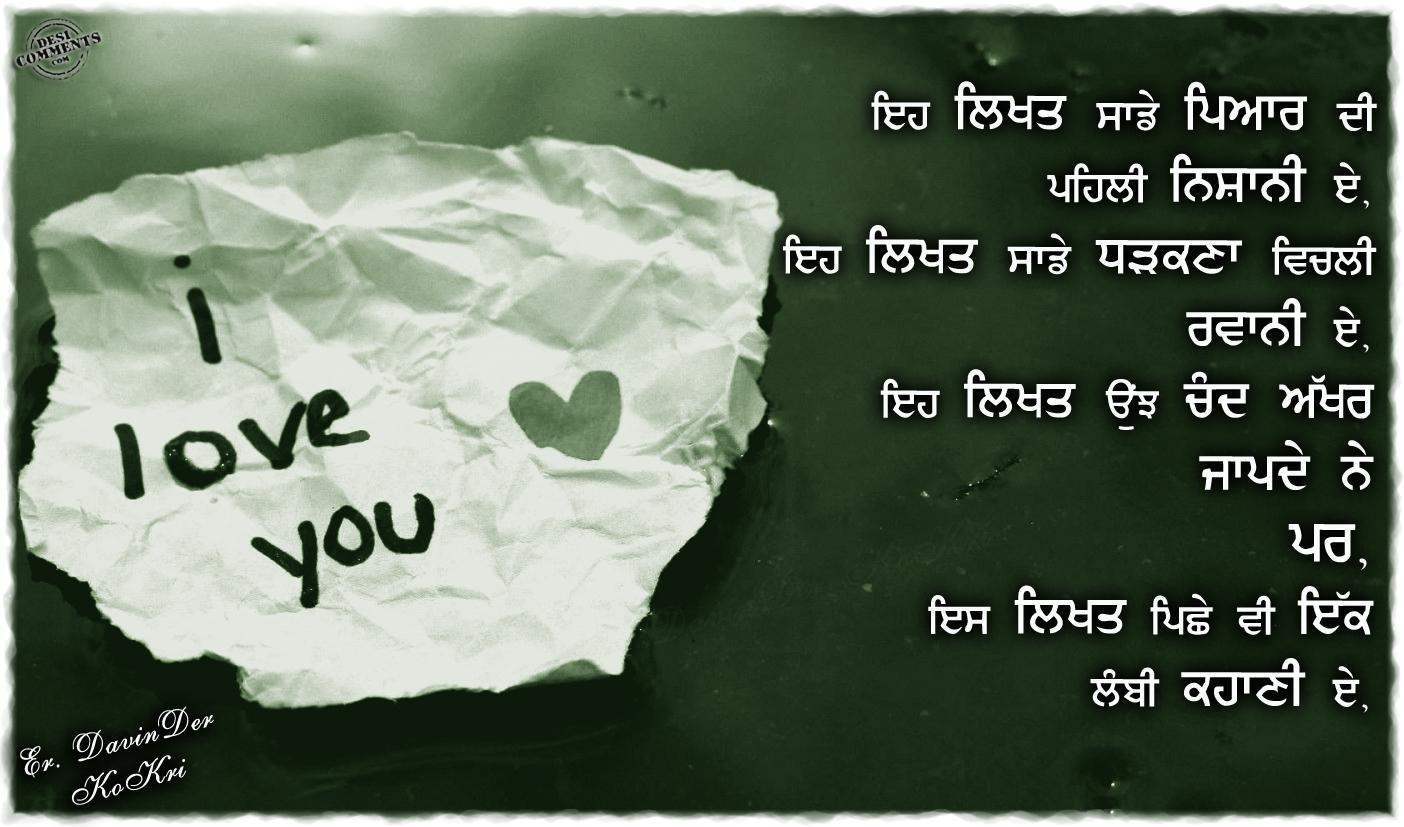 DESI
COMMENTS
.COM
i
love
you
ਇਹ ਲਿਖਤ ਸਾਡੇ ਪਿਆਰ ਦੀ
ਪਹਿਲੀ ਨਿਸ਼ਾਨੀ ਏ,
ਇਹ ਲਿਖਤ ਸਾਡੇ ਧੜਕਣਾ ਵਿਚਲੀ
ਰਵਾਨੀ ਏ,
ਇਹ ਲਿਖਤ ਉਂਝ ਚੰਦ ਅੱਖਰ
ਜਾਪਦੇ ਨੇ
ਪਰ,
ਇਸ ਲਿਖਤ ਪਿਛੇ ਵੀ ਇੱਕ
ਲੰਬੀ ਕਹਾਣੀ ਏ,
Er. DavinDer
KoKri